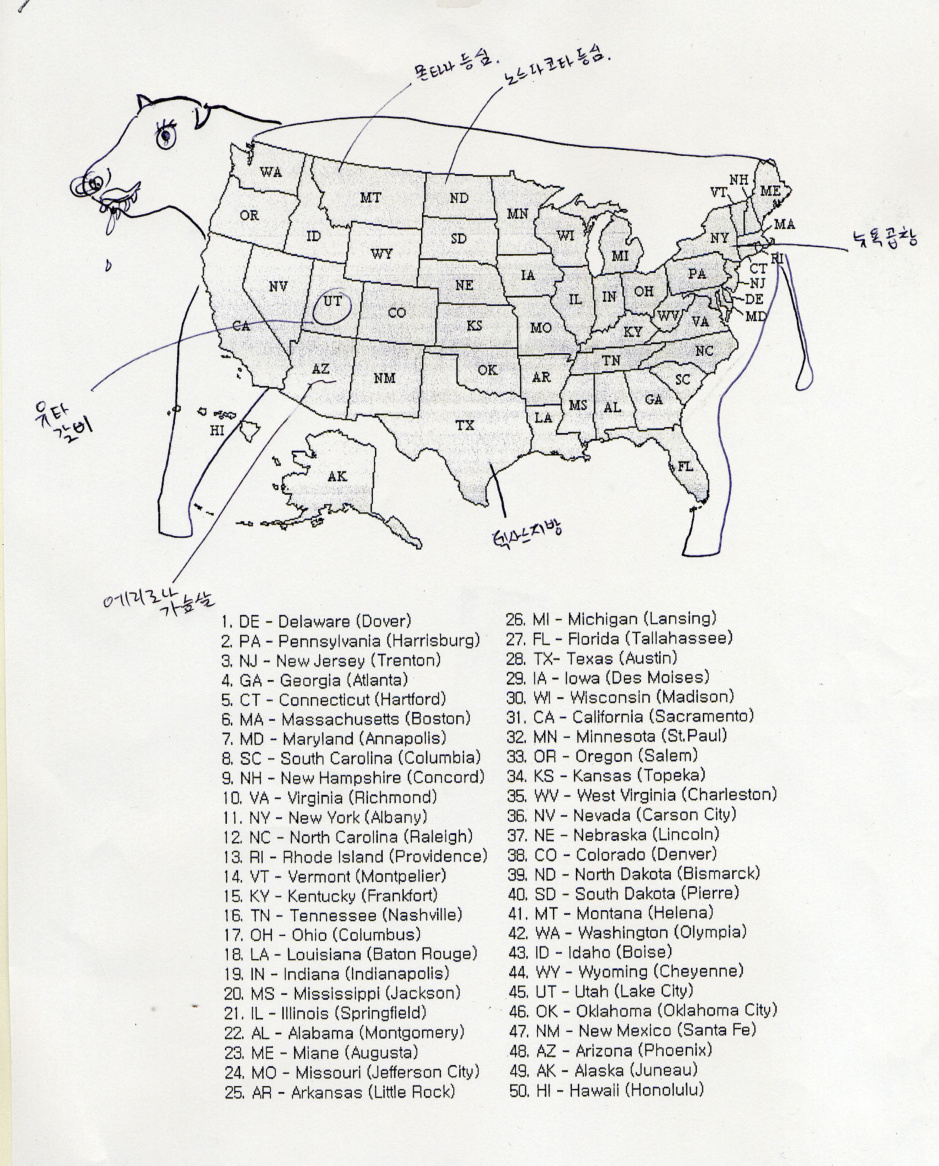 몬타나 등심.
노스다코타 등심.
WA
MT
ND
MN
VT
NH
ME
OR
ID
WY
SD
WI
MI
NY
MA
뉴욕곱창
NV
UT
CO
NE
IA
IL
IN
OH
PA
RI
CT
NJ
DE
MD
CA
KS
MO
KY
WV
VA
AZ
NM
OK
AR
TN
NC
SC
TX
LA
MS
AL
GA
FL
유타
갈비
HI
AK
텍사스지방
에리조나
가슴살
1. DE - Delaware (Dover)
2. PA - Pennsylvania (Harrisburg)
3. NJ - New Jersey (Trenton)
4. GA - Georgia (Atlanta)
5. CT - Connecticut (Hartford)
6. MA - Massachusetts (Boston)
7. MD - Maryland (Annapolis)
8. SC - South Carolina (Columbia)
9. NH - New Hampshire (Concord)
10. VA - Virginia (Richmond)
11. NY - New York (Albany)
12. NC - North Carolina (Raleigh)
13. RI - Rhode Island (Providence)
14. VT - Vermont (Montpelier)
15. KY - Kentucky (Frankfort)
16. TN - Tennessee (Nashville)
17. OH - Ohio (Columbus)
18. LA - Louisiana (Baton Rouge)
19. IN - Indiana (Indianapolis)
20. MS - Mississippi (Jackson)
21. IL - Illinois (Springfield)
22. AL - Alabama (Montgomery)
23. ME - Miane (Augusta)
24. MO - Missouri (Jefferson City)
25. AR - Arkansas (Little Rock)
26. MI - Michigan (Lansing)
27. FL - Florida (Tallahassee)
28. TX- Texas (Austin)
29. IA - Iowa (Des Moines)
30. WI - Wisconsin (Madison)
31. CA - California (Sacramento)
32. MN - Minnesota (St.Paul)
33. OR - Oregon (Salem)
34. KS - Kansas (Topeka)
35. WV - West Virginia (Charleston)
36. NV - Nevada (Carson City)
37. NE - Nebraska (Lincoln)
38. CO - Colorado (Denver)
39. ND - North Dakota (Bismarck)
40. SD - South Dakota (Pierre)
41. MT - Montana (Helena)
42. WA - Washington (Olympia)
43. ID - Idaho (Boise)
44. WY - Wyoming (Cheyenne)
45. UT - Utah (Lake City)
46. OK - Oklahoma (Oklahoma City)
47. NM - New Mexico (Santa Fe)
48. AZ - Arizona (Phoenix)
49. AK - Alaska (Juneau)
50. HI - Hawaii (Honolulu)